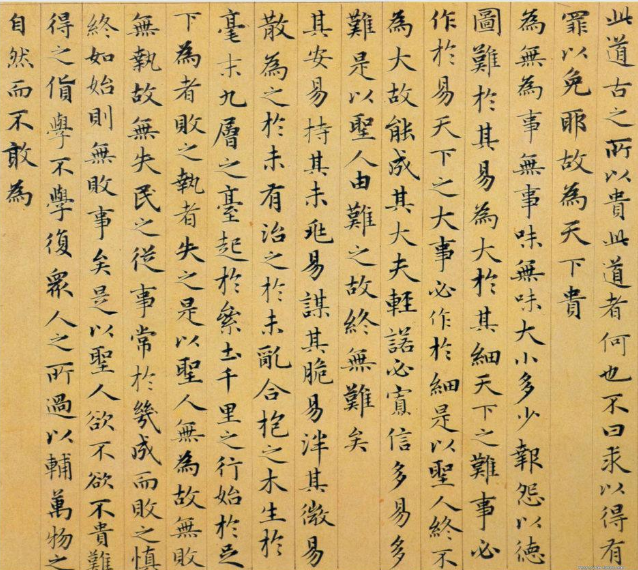 此道古之所以貴此道者何也不曰求以得有
罪以免耶故為天下貴
為無為事無事味無味大小多少報怨以德
圖難於其易為大於其細天下之難事必
作於易天下之大事必作於細是以聖人終不
為大故能成其大夫輕諾必寡信多易多
難是以聖人由難之故終無難矣
其安易持其未兆易謀其脆易泮其微易
散為之於未有治之於未亂合抱之木生於
毫末九層之臺起於累土千里之行始於足
下為者敗之執者失之是以聖人無為故無敗
無執故無失民之從事常於幾成而敗之慎
終如始則無敗事矣是以聖人欲不欲不貴難
得之貨學不學復眾人之所過以輔萬物之
自然而不敢為